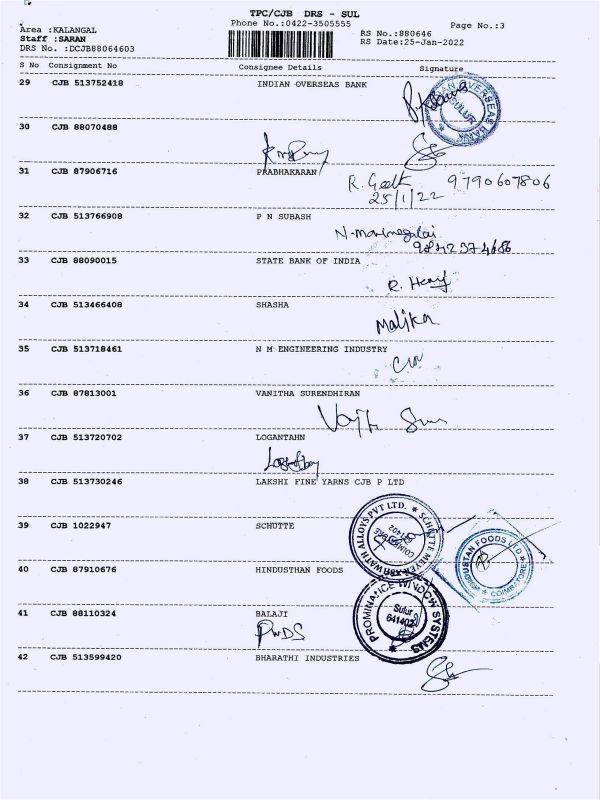 TPC/CJB DRS - SUL
Phone No.:0422-3505555
Page No.:3
Area :KALANGAL
Staff :SARAN
DRS No. :DCJB88064603
RS No.:880646
RS Date:25-Jan-2022
S No Consignment No Consignee Details Signature
29 CJB 513752418 INDIAN OVERSEAS BANK
INDIAN OVERSEAS BANK
SULUR
30 CJB 88070488
31 CJB 87906716 PRABHAKARAN
R. Geeth 9790607806
25/1/22
32 CJB 513766908 P N SUBASH
33 CJB 88090015 STATE BANK OF INDIA
34 CJB 513466408 SHASHA
Malika
35 CJB 513718461 N M ENGINEERING INDUSTRY
36 CJB 87813001 VANITHA SURENDHIRAN
37 CJB 513720702 LOGANTAHN
38 CJB 513730246 LAKSHI FINE YARNS CJB P LTD
39 CJB 1022947 SCHUTTE
SCHUTTE MEYER ASHWATH ALLOYS PVT LTD.
COIMBATORE
641402
HINDUSTAN FOODS LTD
COIMBATORE
40 CJB 87910676 HINDUSTHAN FOODS
PROMINANCE WINDOW SYSTEMS
Sulur
641402
41 CJB 88110324 BALAJI
PWDS
42 CJB 513599420 BHARATHI INDUSTRIES